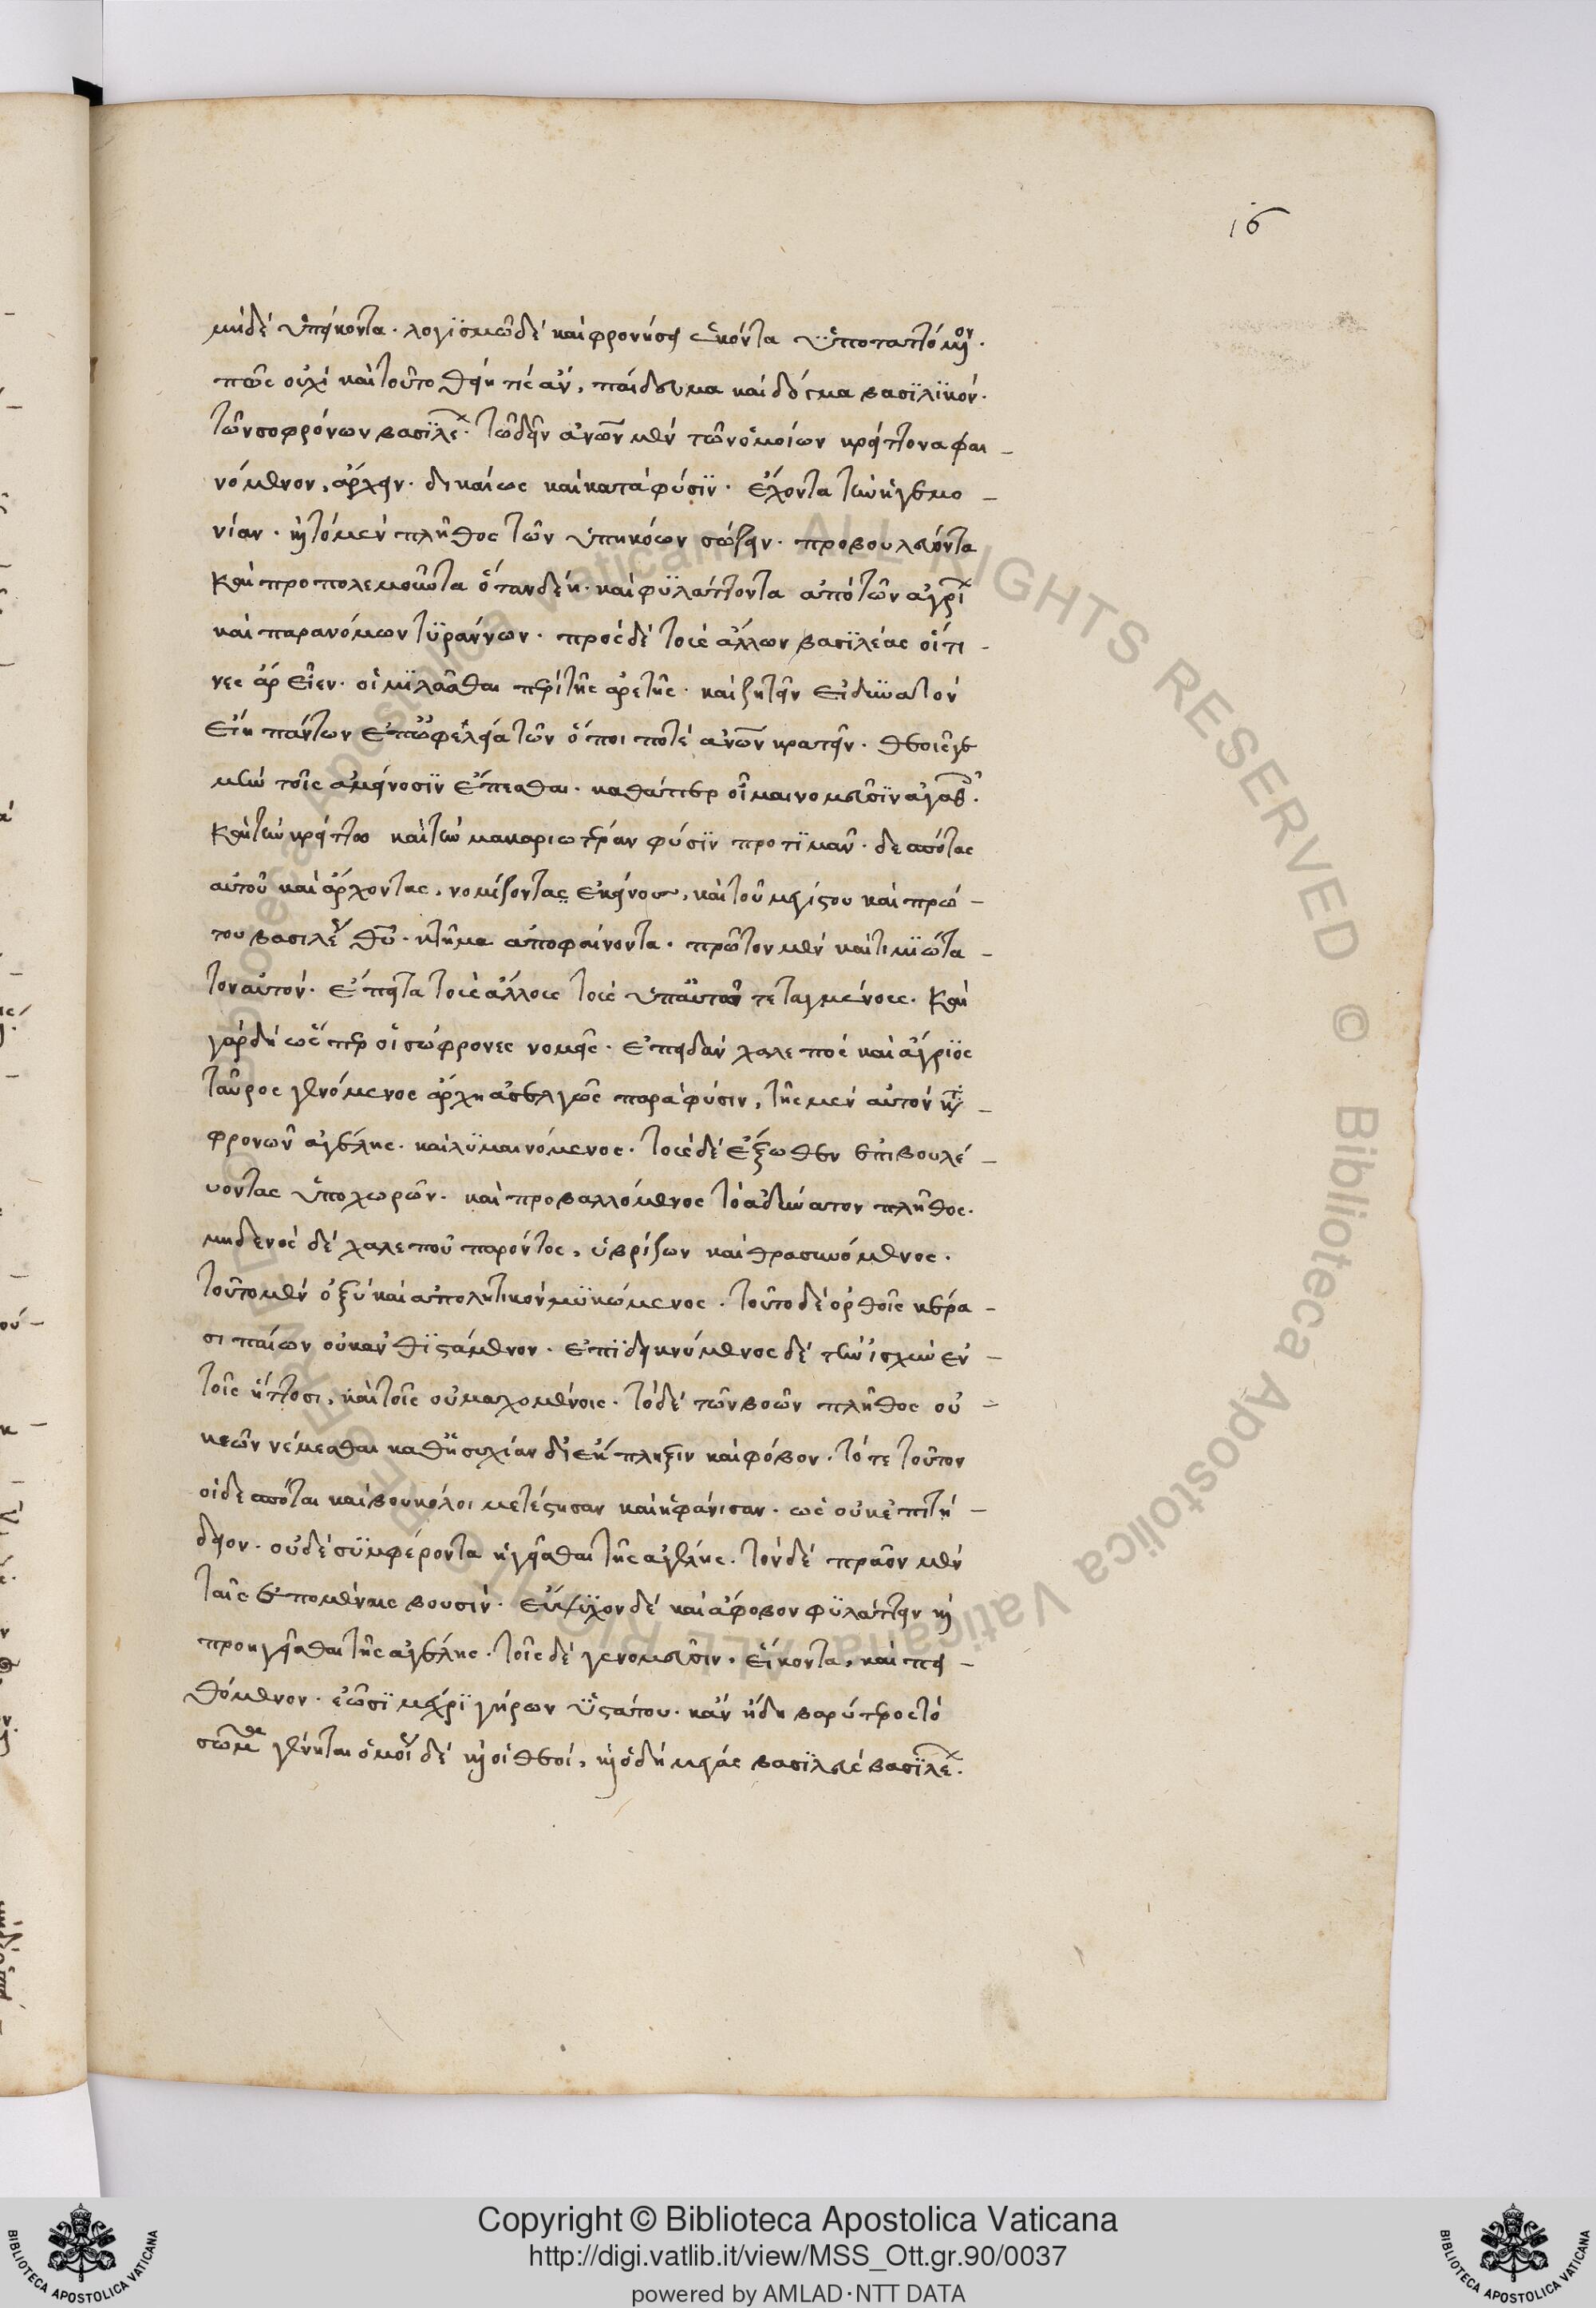 16
μηδέ ὑπήκοντα. λογϊσμῶ δέ καὶ φρονήσει ἑκόντα ὑποταττόμενον.
πῶς οὐχί καὶ τοῦτο θείη τίς ἄν, παίδευμα καὶ δόγμα βασϊλϊκόν.
τῶν σοφρόνων βασϊλέων. τῶ δεῖν ἀνῶν μέν τῶν ὁμοίων κρείττονα φαι-
νόμενον, ἄρχειν. δικαίως καὶ κατά φύσϊν. ἔχοντα τὴν ἡγεμο-
νίαν. καὶ τὸ μέν πλῆθος τῶν ὑπηκόων σώζειν. προβουλεύοντα
καὶ προπολεμοῦντα ὅταν δέη. καὶ φϋλάττοντα ἀπό τῶν ἀγρίων
καὶ παρανόμων τϋράννων. πρός δέ τοὺς ἄλλων βασϊλέας οἵτι-
νες ἄρ εἶεν. οἱμϊλᾶσθαι περί τῆς ἀρετῆς. καὶ ζητεῖν εἰ δυνατόν
εἴη πάντων ἐπ' ὠφελεία τῶν ὅποι ποτέ ἀνῶν κρατεῖν. θεοῖς γε
μήν τοῖς ἀμείνοσϊν ἕπεσθαι. καθάπερ οἶμαι νομεῦσϊν ἀγαθοῖς.
καὶ τὴν κρείττω καὶ τὴν μακαριωτέραν φύσϊν προτϊμᾶν. δεσπότας
αὐτοῦ καὶ ἄρχοντας, νομίζοντας ἐκείνους, καὶ τοῦ μεγίστου καὶ πρώ-
του βασιλέως θῦ. κτῆμα ἀποφαίνοντα. πρῶτον μέν καὶ τιμϊώτα-
τον αὐτόν. ἔπειτα τοὺς ἄλλους τοὺς ὑπ' αὐτοῦ τεταγμένους. καὶ
γάρ δή ὥσπερ οἱ σώφρονες νομεῖς. ἐπειδάν χαλεπός καὶ ἄγρϊος
ταῦρος γενόμενος ἄρχη ἀσελγῶς παρά φύσιν, τῆς μέν αὐτοῦ κατα-
φρονῶν ἀγέλης. καὶ λϋμαινόμενος. τοὺς δέ ἔξωθεν ἐπιβουλέ-
υοντας ὑποχωρῶν. καὶ προβαλλόμενος τὸ ἀδύνατον πλῆθος.
μηδενός δέ χαλεποῦ παρόντος, ὑβρίζων καὶ θρασυνόμενος.
τοῦτο μέν ὀξύ καὶ ἀπολητικόν μϋκώμενος. τοῦτο δέ ὀρθοῖς κέρα-
σι παίων οὐκ ἀνθϊστάμενον. ἐπϊδεικνύμενος δέ τὴν ἰσχύν ἐν
τοῖς ἥττοσι, καὶ τοῖς οὐ μαχομένοις. τὸ δέ τῶν βοῶν πλῆθος οὐ-
κ ἐῶν νέμεσθαι καθ' ἡσυχίαν δι' ἔκπληξιν καὶ φόβον. τότε τοῦτον
οἱ δεσπόται καὶ βουκόλοι μετέστησαν καὶ ἠφάνισαν. ὡς οὐκ ἐπιτή-
δειον. οὐδέ σϋμφέροντα ἡγεῖσθαι τῆς ἀγέλης. τὸν δέ πρᾶον μέν
ταῖς ἑπομέναις βουσίν. εὔψϋχον δέ καὶ ἄφοβον φϋλάττειν καὶ
προηγεῖσθαι τῆς ἀγέλης. τοῖς δέ γε νομεῦσιν. εἴκοντα, καὶ πει-
θόμενον. ἐῶσϊ μέχρϊ γήρων ὑστάτου. κἄν ἤδη βαρύτερος τὸ
σῶμα γένηται ὁμοίως δέ καὶ οἱ θεοί, καὶ ὁ δή μέγας βασϊλεύς βασϊλέων.
Copyright © Biblioteca Apostolica Vaticana
http://digi.vatlib.it/view/MSS_Ott.gr.90/0037
powered by AMLAD·NTT DATA